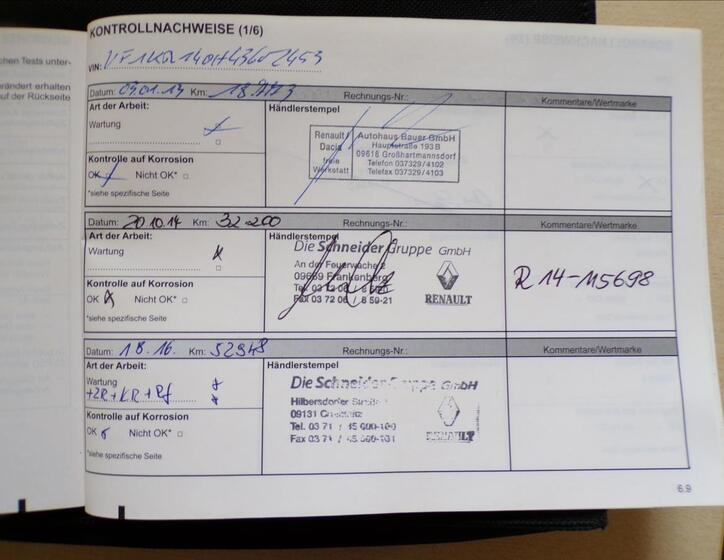 chen Tests unter-
erändert erhalten
uf der Rückseite
KONTROLLNACHWEISE (1/6)
VIN:
Datum: 09.01.13 Km: Rechnungs-Nr.: Kommentare/Wertmarke
Art der Arbeit: Händlerstempel
Wartung
Renault / Dacia
freie Werkstatt
Autohaus Bauer GmbH
Hauptstraße 193 B
09618 Großhartmannsdorf
Telefon 037329 / 4102
Telefax 037329 / 4103
Kontrolle auf Korrosion
OK Nicht OK*
*siehe spezifische Seite
Datum: 20.10.14 Km: 32200 Rechnungs-Nr.: Kommentare/Wertmarke
Art der Arbeit: Händlerstempel
Wartung
Die Schneider Gruppe GmbH
An der Feuerwache 2
09669 Frankenberg
Tel. 03 72 06
Fax 03 72 06 / 8 59-21
RENAULT
R 14-115698
Kontrolle auf Korrosion
OK Nicht OK*
*siehe spezifische Seite
Datum: 1 8.16. Km: 52948 Rechnungs-Nr.: Kommentare/Wertmarke
Art der Arbeit: Händlerstempel
Wartung
+ZR+KR+Rf
Die Schneider Gruppe GmbH
Hilbersdorfer
09131 Chemnitz
Tel. 03 71 /
Fax 03 71 /
RENAULT
Kontrolle auf Korrosion
OK Nicht OK*
*siehe spezifische Seite
6.9